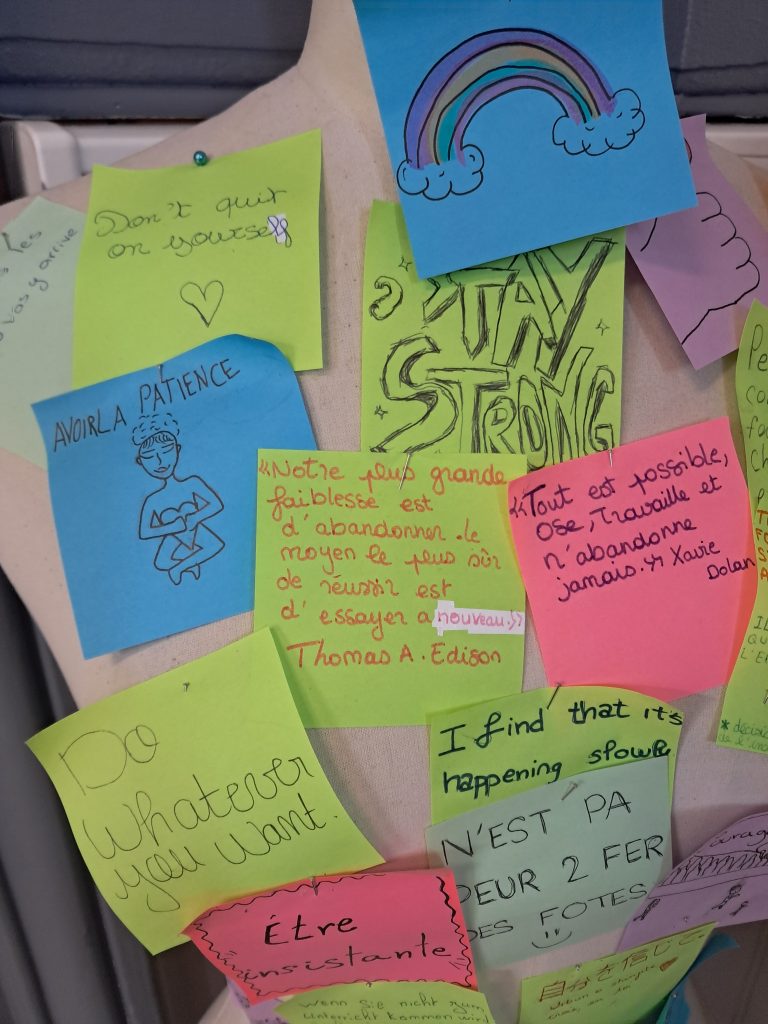 Don't quit
on yourself
s les
vas y arrive
STAY
STRONG
AVOIR LA PATIENCE
«Notre plus grande
faiblesse est
d'abandonner. Le
moyen le plus sûr
de réussir est
d'essayer a nouveau.»
Thomas A. Edison
«Tout est possible,
Ose, Travaille et
n'abandonne
jamais.» Xavie
Dolan
Do
Whatever
you want.
I find that it's
happening slowly
N'EST PA
PEUR 2 FER
DES FOTES
Être
insistante
Wenn Sie nicht zum
Unterricht kommen wird
自分を信じて